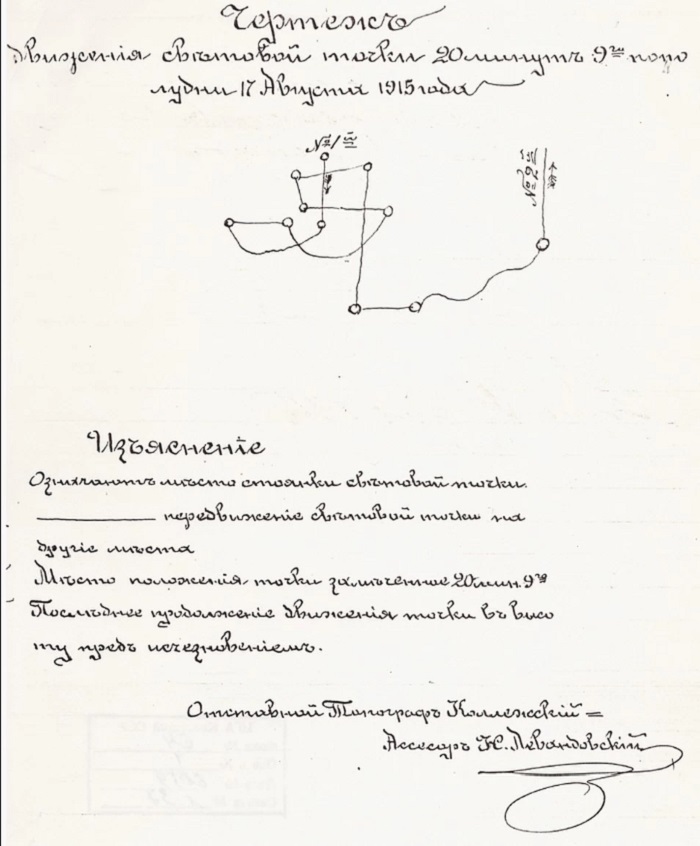 Чертежъ
движенія свѣтовой точки 20 минутъ 9го попо
лудни 17 Августа 1915 года
№ 1
№ 2
Изъясненіе
Означаютъ мѣсто стоянки свѣтовой точки.
передвиженіе свѣтовой точки на
другіе мѣста
Мѣсто положенія точки замѣченное 20 мин. 9го
Послѣднее продолженіе движенія точки въ высо
ту предъ исчезновеніемъ.
Отставной Топографъ Коллежскій =
Ассесоръ К. Левандовскій